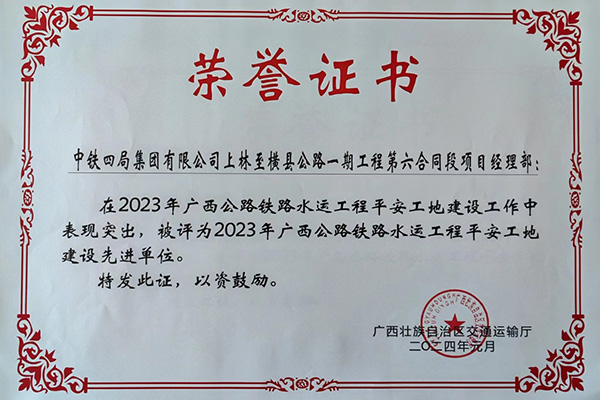 荣誉证书
中铁四局集团有限公司上林至横县公路一期工程第六合同段项目经理部：
在2023年广西公路铁路水运工程平安工地建设工作中
表现突出，被评为2023年广西公路铁路水运工程平安工地
建设先进单位。
特发此证，以资鼓励。
广西壮族自治区交通运输厅
二〇二四年元月